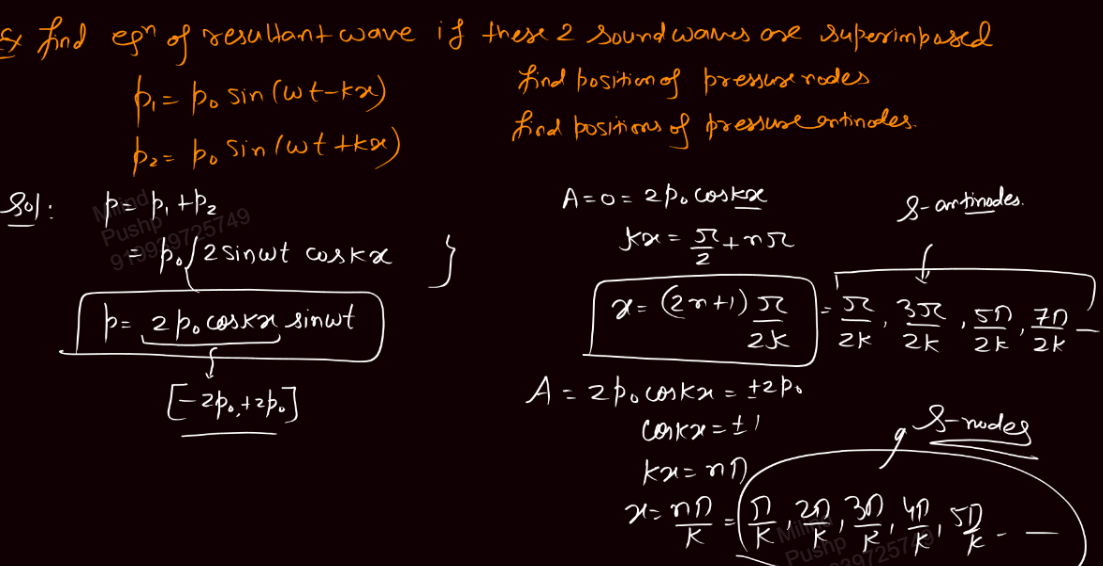 Ex find eqn of resultant wave if these 2 sound waves are superimposed
p₁ = p₀ sin(ωt-kx)
p₂ = p₀ sin(ωt+kx)
find position of pressure nodes
find positions of pressure antinodes.
Sol: p = p₁ + p₂
= p₀{2 sinωt coskx}
p = 2p₀ coskx sinωt
[-2p₀, +2p₀]
A = 0 = 2p₀ coskx
kx = π/2 + nπ
x = (2n+1) π/2k = π/2k, 3π/2k, 5π/2k, 7π/2k --
S-antinodes.
A = 2p₀ coskx = ±2p₀
coskx = ±1
kx = nπ
x = nπ/k = π/k, 2π/k, 3π/k, 4π/k, 5π/k - --
S-nodes
Milind
Pushp
919939725749
Milind
Pushp